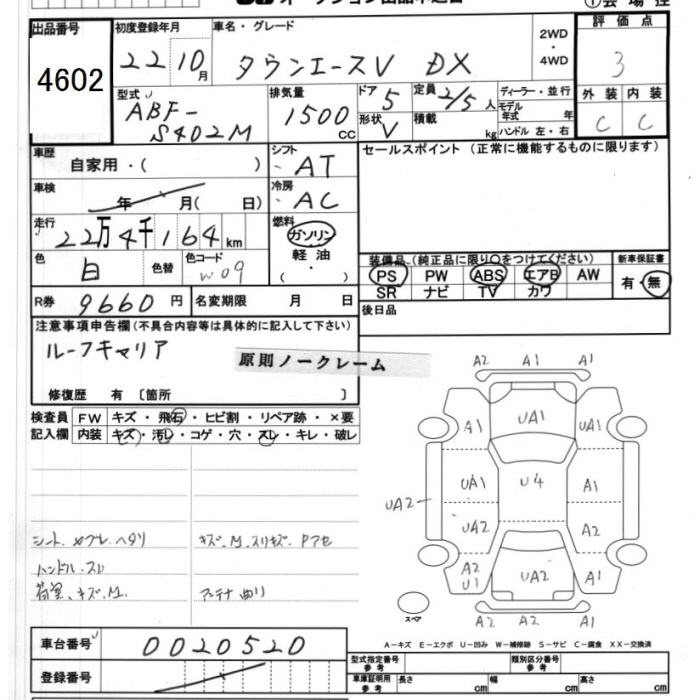 出品番号
4602
初度登録年月
22 10月
車名・グレード
タウンエースV DX
2WD
・
4WD
評価点
3
型式
ABF-
S402M
排気量
1500
CC
ドア 5
形状 V
定員 2/5人
積載 kg
ディーラー・並行
モデル年式 年
ハンドル 左・右
外装 内装
C C
車歴
自家用・( )
シフト
AT
セールスポイント (正常に機能するものに限ります)
車検
年 月( 日)
冷房
AC
走行
22万4千164km
燃料
ガソリン
軽油
( ・ )
色
白
色替
色コード
W09
装備品 (純正品に限り○をつけてください)
PS PW ABS エアB AW
SR ナビ TV カワ
新車保証書
有・無
R券 9660円
名変期限 月 日
後日品
注意事項申告欄(不具合内容等は具体的に記入して下さい)
ルーフキャリア
原則ノークレーム
修復歴 有 〔箇所 〕
検査員記入欄
FW キズ・飛石・ヒビ割・リペア跡・×要
内装 キズ・汚レ・コゲ・穴・スレ・キレ・破レ
シート ヘタリ
キズ、M、スリキズ
ハンドル スレ
荷室、キズ、M、
アンテナ 曲り
A2 A1 A1
A1 UA1 UA1
UA1 U4 A1
UA2
UA2 A2
A2
U1 UA2 A1
A2 A2 A1
スペア
A-キズ E-エクボ U-凹み W-補修跡 S-サビ C-腐食 XX-交換済
車台番号 0020520
登録番号
型式指定番号
参考
類別区分番号
参考
車庫証明用
参考
長さ cm
幅 cm
高さ cm